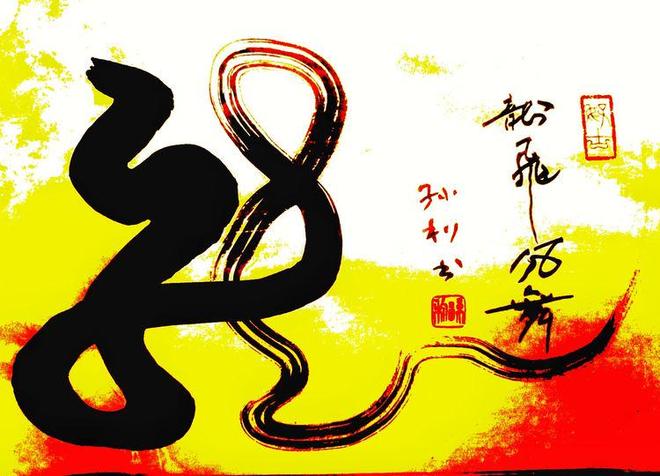 龍
龍飛鳳舞
孙利书